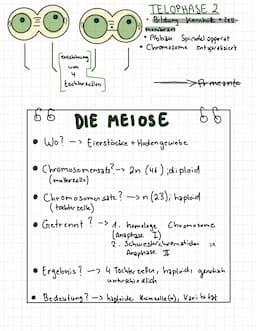 TELOPHASE 2
• Bildung Kernhülle + Zell
membranen
• Abbau Spindelapparat
• Chromosome entspiralisiert
Entstehung
von
4
Tochterzellen
DIE MEIOSE
• Wo? -> Eierstöcke + Hodengewebe
• Chromosomensatz? -> 2n (46); diploid
(Mutterzelle)
• Chromosomensatz? -> n (23); haploid
(Tochterzelle)
• Getrennt? -> 1. homologe Chromosome
(Anaphase I)
2. Schwesterchromatiden in
Anaphase II
• Ergebnis? -> 4 Tochterzellen, haploid, genetisch
unterschiedlich
• Bedeutung? -> haploide Keimzelle(n), Variabilität